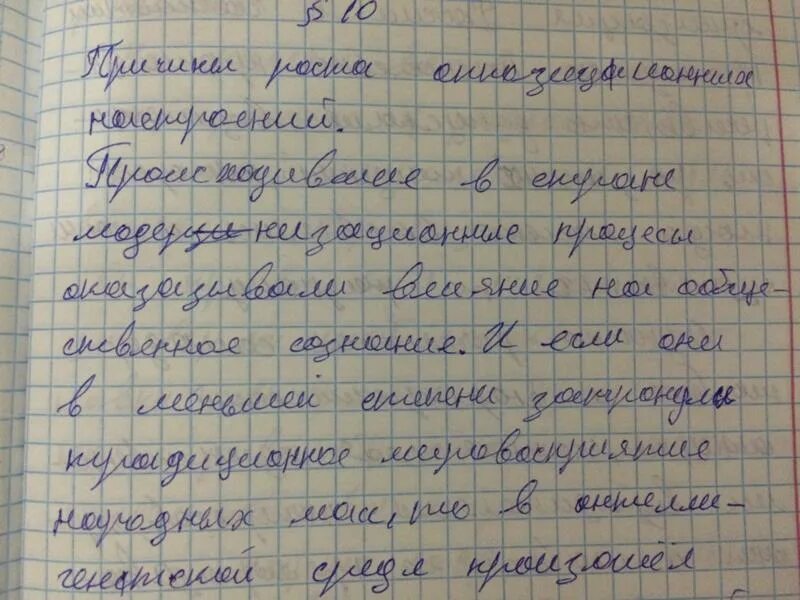 § 10
Причины роста оппозиционных
настроений.
Происходившие в стране
модернизационные процесы
оказазывали влияние на обще-
ственное сознание. И если они
в меньшей степени затронули
традиционное мировосприятие
народных масс, то в интелли-
гентской среде произошёл